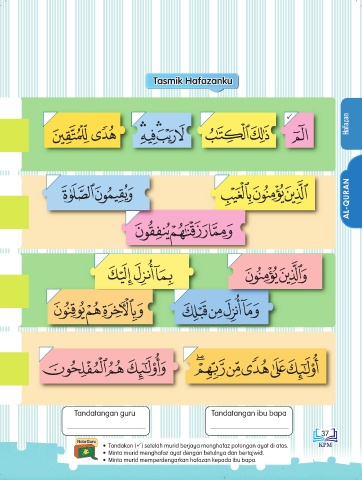 Tasmik Hafazanku
Hafazan
AL-QURAN
الٓمٓ ذَٰلِكَ ٱلْكِتَٰبُ لَا رَيْبَ ۛ فِيهِ ۛ هُدًى لِّلْمُتَّقِينَ
ٱلَّذِينَ يُؤْمِنُونَ بِٱلْغَيْبِ وَيُقِيمُونَ ٱلصَّلَوٰةَ
وَمِمَّا رَزَقْنَٰهُمْ يُنفِقُونَ
وَٱلَّذِينَ يُؤْمِنُونَ بِمَآ أُنزِلَ إِلَيْكَ
وَمَآ أُنزِلَ مِن قَبْلِكَ وَبِٱلْءَاخِرَةِ هُمْ يُوقِنُونَ
أُو۟لَٰٓئِكَ عَلَىٰ هُدًى مِّن رَّبِّهِمْ ۖ وَأُو۟لَٰٓئِكَ هُمُ ٱلْمُفْلِحُونَ
Tandatangan guru
Tandatangan ibu bapa
Nota Guru
• Tandakan (✓) setelah murid berjaya menghafaz potongan ayat di atas.
• Minta murid menghafaz ayat dengan betulnya dan bertajwid.
• Minta murid memperdengarkan hafazan kepada ibu bapa.
37
KPM